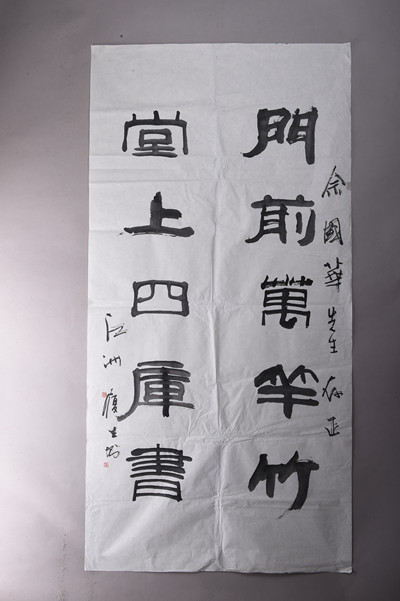 余國華先生存正
門前萬竿竹
堂上四庫書
江洲